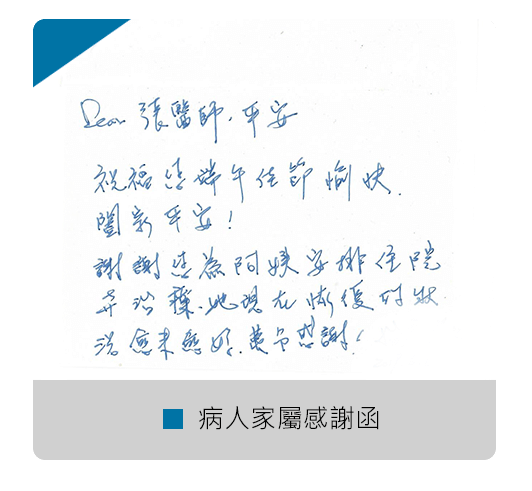 Dear 張醫師，平安
祝福您端午佳節愉快，
闔家平安！
謝謝您為阿姨安排住院
并治療，她現在恢復的狀
況愈來愈好，萬分感謝！
病人家屬感謝函